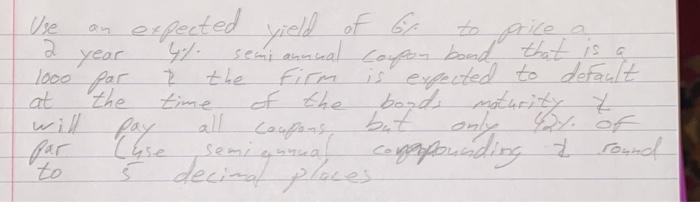 Use an expected yield of 6% to price a
2 year 4% semi annual coupon bond that is a
1000 par & the firm is expected to default
at the time of the bonds maturity &
will pay all coupons, but only 42% of
par (use semi annual compounding & round
to 5 decimal places